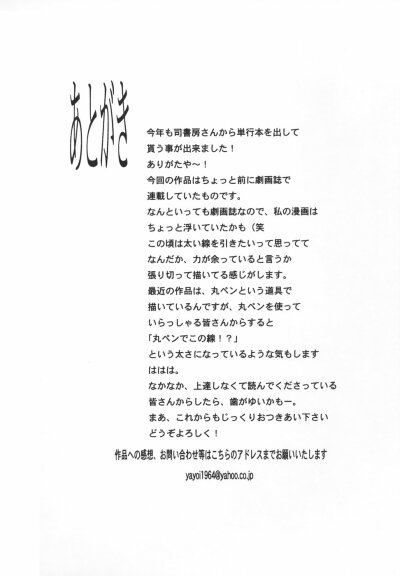 あとがき
今年も司書房さんから単行本を出して
貰う事が出来ました！
ありがたや～！
今回の作品はちょっと前に劇画誌で
連載していたものです。
なんといっても劇画誌なので、私の漫画は
ちょっと浮いていたかも（笑
この頃は太い線を引きたいって思ってて
なんだか、力が余っていると言うか
張り切って描いてる感じがします。
最近の作品は、丸ペンという道具で
描いているんですが、丸ペンを使って
いらっしゃる皆さんからすると
「丸ペンでこの線！？」
という太さになっているような気もします
ははは。
なかなか、上達しなくて読んでくださっている
皆さんからしたら、歯がゆいかもー。
まあ、これからもじっくりおつきあい下さい
どうぞよろしく！
作品への感想、お問い合わせ等はこちらのアドレスまでお願いいたします
yayoi1964@yahoo.co.jp